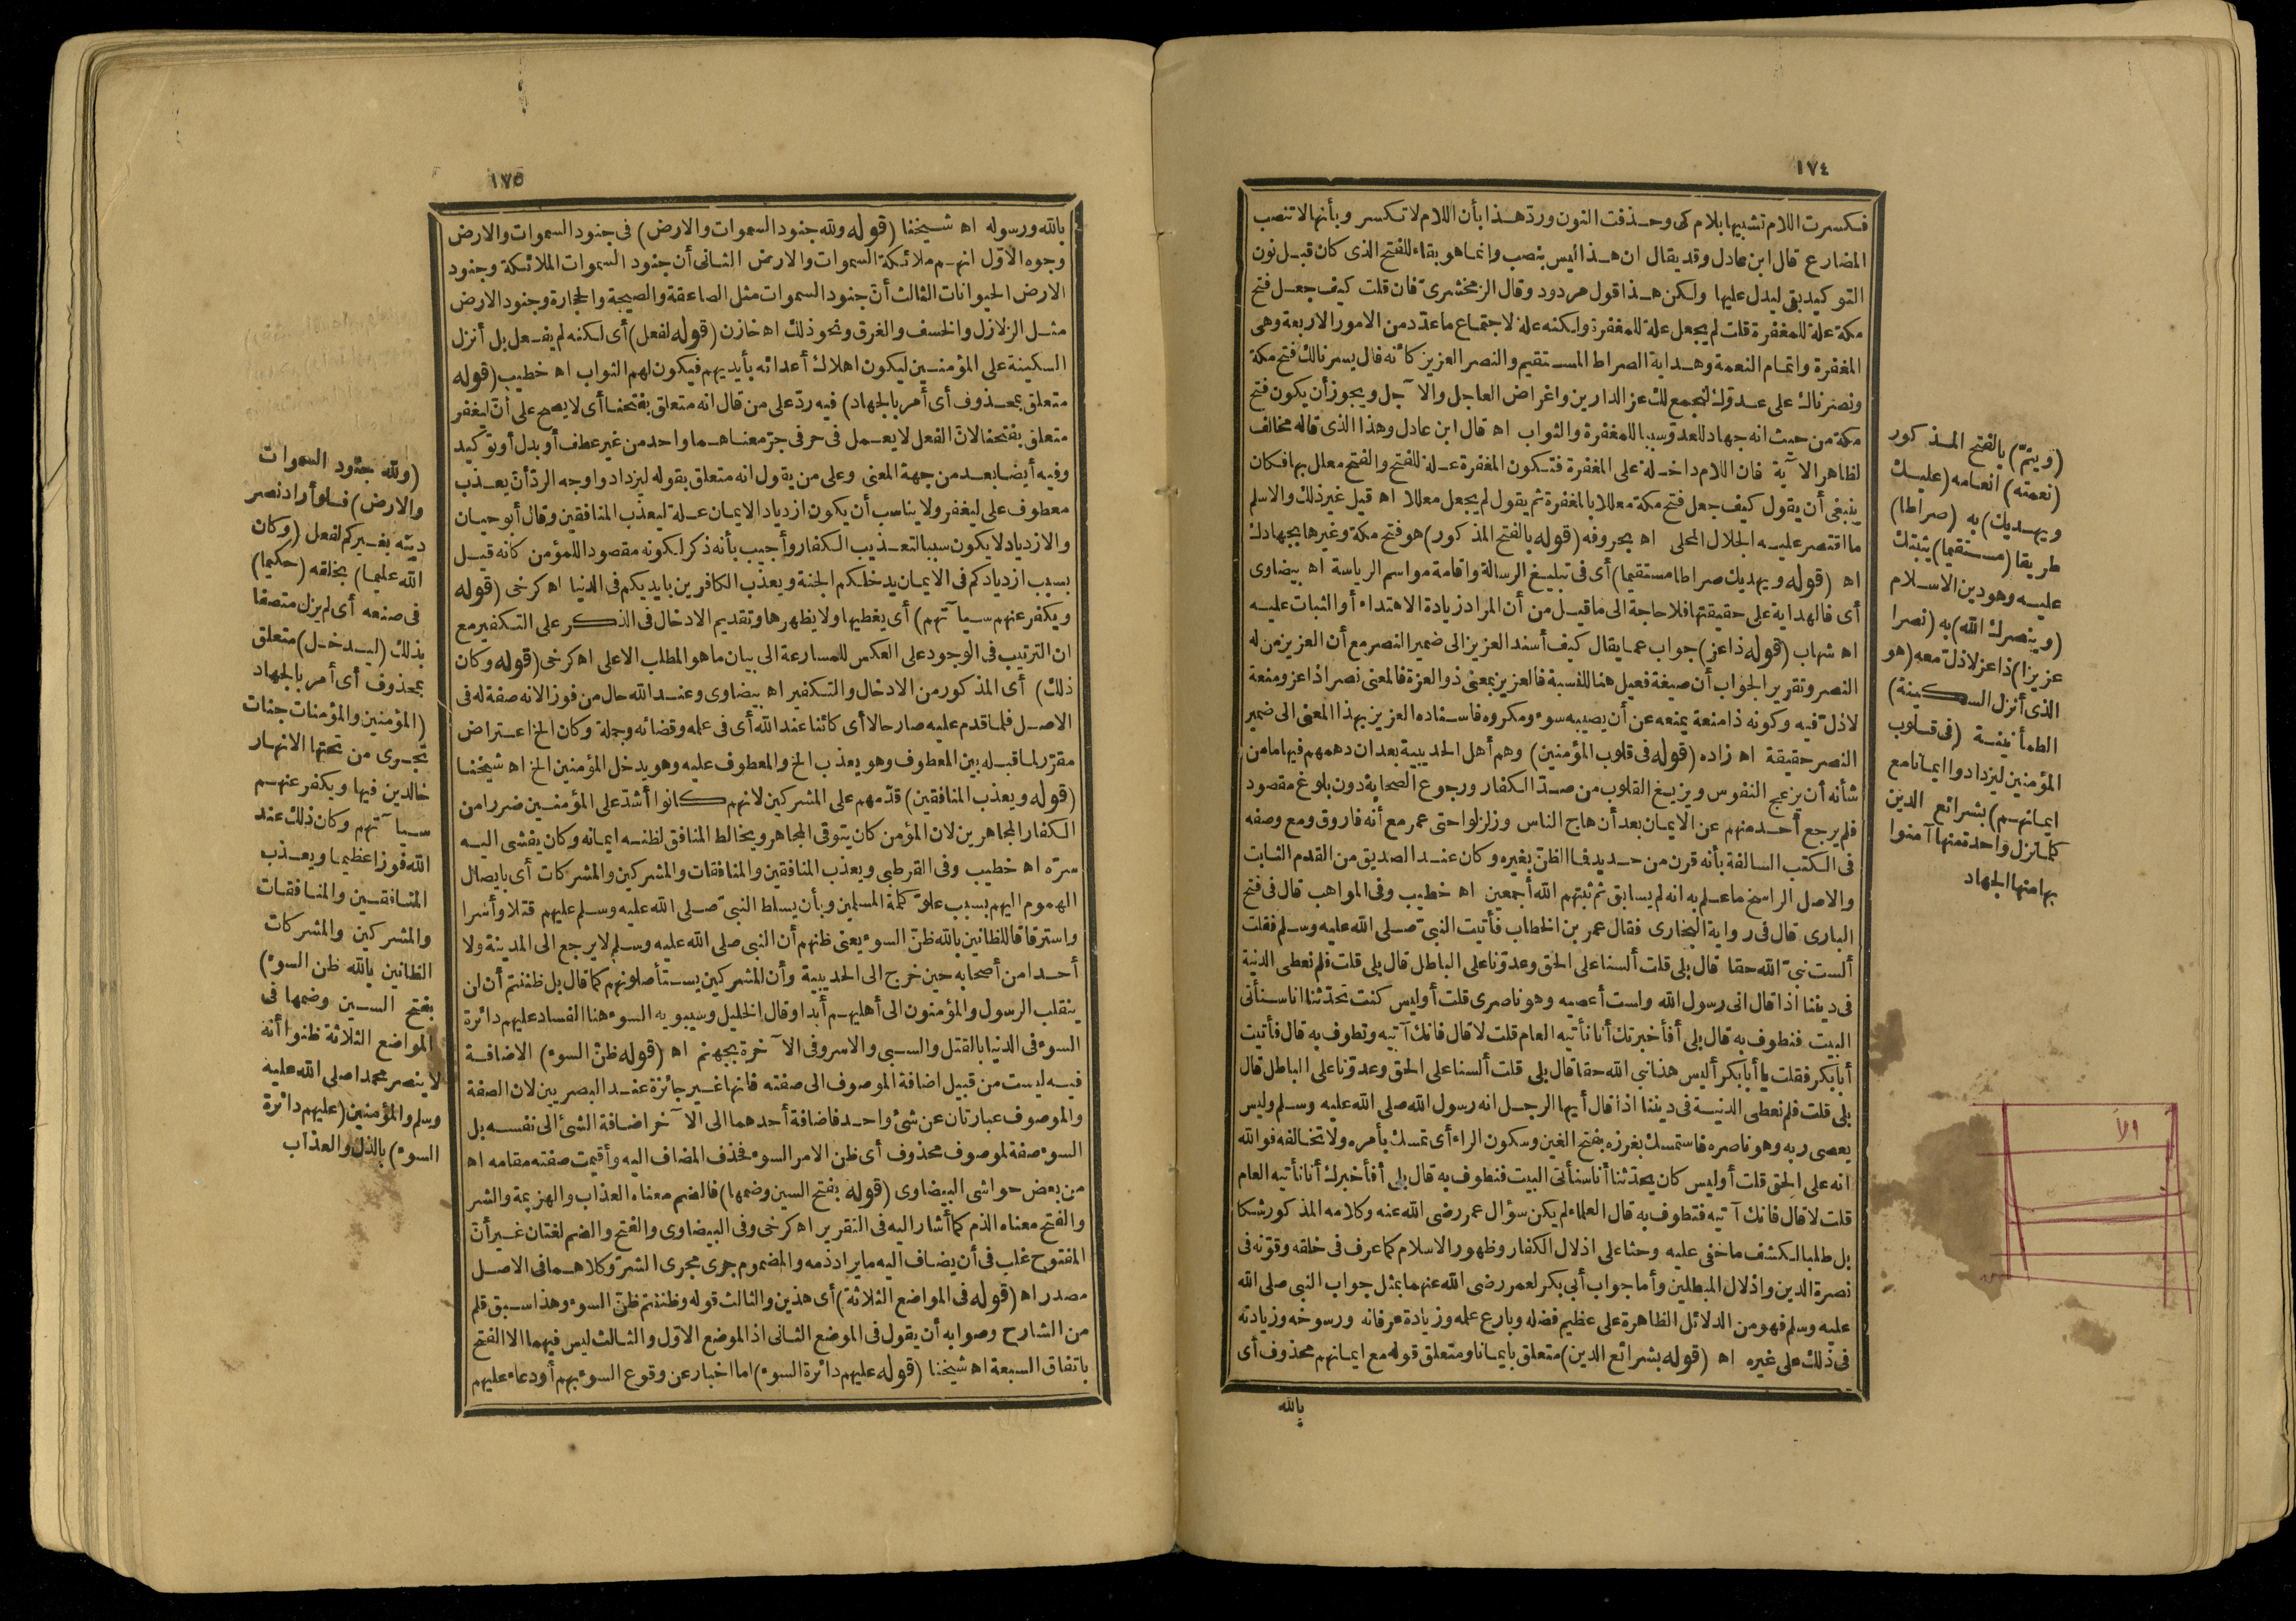 ١٧٤
فكسرت اللام تشبيها بلام كى وحذفت النون وردّ هذا بأن اللام لا تكسر وبأنها لا تنصب
المضارع قال ابن عادل وقد يقال ان هذا ليس بنصب وانما هو بقاء للفتح الذى كان قبل نون
التوكيد بقى ليدل عليها ولكن هذا قول مردود وقال الزمخشرىّ فان قلت كيف جعل فتح
مكة علة للمغفرة قلت لم يجعل علة للمغفرة ولكنه علة لاجتماع ما عدّد من الامور الاربعة وهى
المغفرة واتمام النعمة وهداية الصراط المستقيم والنصر العزيز كأنه قال يسرنا لك فتح مكة
ونصرناك على عدوّك لنجمع لك عز الدارين واغراض العاجل والآجل ويجوز أن يكون فتح
مكة من حيث انه جهاد للعدوّ سببا للمغفرة والثواب اه قال ابن عادل وهذا الذى قاله مخالف
لظاهر الآية فان اللام داخلة على المغفرة فتكون المغفرة علة للفتح والفتح معلل بها فكان
ينبغى أن يقول كيف جعل فتح مكة معللا بالمغفرة ثم يقول لم يجعل معللا اه قيل غير ذلك والاسلم
ما اقتصر عليه الجلال المحلى اه بحروفه (قوله بالفتح المذكور) هو فتح مكة وغيرها بجهادك
اه (قوله ويهديك صراطا مستقيما) أى فى تبليغ الرسالة واقامة مواسم الرياسة اه بيضاوى
أى فالهداية على حقيقتها فلا حاجة الى ما قيل من أن المراد زيادة الاهتداء أو الثبات عليه
اه شهاب (قوله ذا عز) جواب عما يقال كيف أسند العزيز الى ضمير النصر مع أن العزيز من له
النصر وتقرير الجواب أن صيغة فعيل هنا للنسبة فالعزيز بمعنى ذو العزة فالمعنى نصرا ذا عز ومنعة
لا ذلّ فيه وكونه ذا منعة يمنعه عن أن يصيبه سوء ومكروه فاسناده العزيز بهذا المعنى الى ضمير
النصر حقيقة اه زاده (قوله فى قلوب المؤمنين) وهم أهل الحديبية بعد ان دهمهم فيها ما من
شأنه أن يزعج النفوس ويزيغ القلوب من صدّ الكفار ورجوع الصحابة دون بلوغ مقصود
فلم يرجع أحد منهم عن الايمان بعد أن هاج الناس وزلزلوا حتى عمر مع أنه فاروق ومع وصفه
فى الكتب السالفة بأنه قرن من حديد فما الظنّ بغيره وكان عند الصديق من القدم الثابت
والاصل الراسخ ما علم به انه لم يسابق ثم ثبتهم الله أجمعين اه خطيب وفى المواهب قال فى فتح
البارى قال فى رواية البخارى فقال عمر بن الخطاب فأتيت النبىّ صلى الله عليه وسلم فقلت
ألست نبىّ الله حقا قال بلى قلت ألسنا على الحق وعدوّنا على الباطل قال بلى قلت فلم نعطى الدنية
فى ديننا اذا قال انى رسول الله ولست أعصيه وهو ناصرى قلت أوليس كنت تحدّثنا انا سنأتى
البيت فنطوف به قال بلى أفأخبرتك أنا نأتيه العام قلت لا قال فانك آتيه وتطوف به قال فأتيت
أبا بكر فقلت يا أبا بكر أليس هذا نبى الله حقا قال بلى قلت ألسنا على الحق وعدوّنا على الباطل قال
بلى قلت فلم نعطى الدنية فى ديننا اذا قال أيها الرجل انه رسول الله صلى الله عليه وسلم وليس
يعصى ربه وهو ناصره فاستمسك بغرزه بفتح الغين وسكون الراء أى تمسك بأمره ولا تخالفه فوالله
انه على الحق قلت أوليس كان يحدّثنا أنا سنأتى البيت فنطوف به قال بلى أفأخبرك أنا نأتيه العام
قلت لا قال فانك آتيه فتطوف به قال العلماء لم يكن سؤال عمر رضى الله عنه وكلامه المذكور شكا
بل طلبا لكشف ما خفى عليه وحثا على اذلال الكفار وظهور الاسلام كما عرف فى خلقه وقوّته فى
نصرة الدين واذلال المبطلين وأما جواب أبى بكر لعمر رضى الله عنهما بمثل جواب النبى صلى الله
عليه وسلم فهو من الدلائل الظاهرة على عظيم فضله وبارع علمه وزيادة عرفانه ورسوخه وزيادته
فى ذلك على غيره اه (قوله بشرائع الدين) متعلق بايمانا ومتعلق قوله مع ايمانهم محذوف أى
بالله
(ويتمّ) بالفتح المذكور
(نعمته) انعامه (عليك
ويهديك) به (صراطا)
طريقا (مستقيما) يثبتك
عليه وهو دين الاسلام
(وينصرك الله) به (نصرا
عزيزا) ذا عز لا ذلّ معه (هو
الذى أنزل السكينة)
الطمأنينة (فى قلوب
المؤمنين ليزدادوا ايمانا مع
ايمانهم) بشرائع الدين
كلما نزل واحدة منها آمنوا
بها منها الجهاد
١٧٥
بالله ورسوله اه شيخنا (قوله ولله جنود السموات والارض) فى جنود السموات والارض
وجوه الاوّل انهم ملائكة السموات والارض الثانى أن جنود السموات الملائكة وجنود
الارض الحيوانات الثالث أنّ جنود السموات مثل الصاعقة والصيحة والحجارة وجنود الارض
مثل الزلازل والخسف والغرق ونحو ذلك اه خازن (قوله لفعل) أى لكنه لم يفعل بل أنزل
السكينة على المؤمنين ليكون اهلاك أعدائه بأيديهم فيكون لهم الثواب اه خطيب (قوله
متعلق بمحذوف أى أمر بالجهاد) فيه ردّ على من قال انه متعلق بفتحنا أى لا يصح على أنّ ليغفر
متعلق بفتحنا لانّ الفعل لا يعمل فى حرفى جرّ معناهما واحد من غير عطف أو بدل أو توكيد
وفيه أيضا بعد من جهة المعنى وعلى من يقول انه متعلق بقوله ليزدادوا وجه الردّ أنّ يعذب
معطوف على ليغفر ولا يناسب أن يكون ازدياد الايمان علة ليعذب المنافقين وقال أبو حيان
والازدياد لا يكون سببا لتعذيب الكفار وأجيب بأنه ذكر لكونه مقصودا للمؤمن كانه قيل
بسبب ازديادكم فى الايمان يدخلكم الجنة ويعذب الكافرين بايديكم فى الدنيا اه كرخى (قوله
ويكفر عنهم سيآتهم) أى يغطيها ولا يظهرها وتقديم الادخال فى الذكر على التكفير مع
ان الترتيب فى الوجود على العكس للمسارعة الى بيان ما هو المطلب الاعلى اه كرخى (قوله وكان
ذلك) أى المذكور من الادخال والتكفير اه بيضاوى وعند الله حال من فوزا لانه صفة له فى
الاصل فلما قدم عليه صار حالا أى كائنا عند الله أى فى علمه وقضائه وجملة وكان الخ اعتراض
مقرّر لما قبله بين المعطوف وهو يعذب الخ والمعطوف عليه وهو يدخل المؤمنين الخ اه شيخنا
(قوله ويعذب المنافقين) قدّمهم على المشركين لانهم كانوا أشدّ على المؤمنين ضررا من
الكفار المجاهرين لان المؤمن كان يتوقى المجاهر ويخالط المنافق لظنه ايمانه وكان يفشى اليه
سرّه اه خطيب وفى القرطبى ويعذب المنافقين والمنافقات والمشركين والمشركات أى بايصال
الهموم اليهم بسبب علوّ كلمة المسلمين وبأن يسلط النبىّ صلى الله عليه وسلم عليهم قتلا وأسرا
واسترقاقا للظانين بالله ظنّ السوء يعنى ظنهم أن النبى صلى الله عليه وسلم لا يرجع الى المدينة ولا
أحد من أصحابه حين خرج الى الحديبية وأن المشركين يستأصلونهم كما قال بل ظننتم أن لن
ينقلب الرسول والمؤمنون الى أهليهم أبدا وقال الخليل وسيبويه السوء هنا الفساد عليهم دائرة
السوء فى الدنيا بالقتل والسبى والاسر وفى الآخرة بجهنم اه (قوله ظنّ السوء) الاضافة
فيه ليست من قبيل اضافة الموصوف الى صفته فانها غير جائزة عند البصريين لان الصفة
والموصوف عبارتان عن شئ واحد فاضافة أحدهما الى الآخر اضافة الشئ الى نفسه بل
السوء صفة لموصوف محذوف أى ظن الامر السوء فحذف المضاف اليه وأقيمت صفته مقامه اه
من بعض حواشى البيضاوى (قوله بفتح السين وضمها) فالضم معناه العذاب والهزيمة والشر
والفتح معناه الذم كما أشار اليه فى التقرير اه كرخى وفى البيضاوى والفتح والضم لغتان غير أنّ
المفتوح غلب فى أن يضاف اليه ما يراد ذمه والمضموم جرى مجرى الشرّ وكلاهما فى الاصل
مصدر اه (قوله فى المواضع الثلاثة) أى هذين والثالث قوله وظننتم ظنّ السوء وهذا سبق قلم
من الشارح وصوابه أن يقول فى الموضع الثانى اذ الموضع الاوّل والثالث ليس فيهما الا الفتح
باتفاق السبعة اه شيخنا (قوله عليهم دائرة السوء) اما اخبار عن وقوع السوء بهم أو دعاء عليهم
(ولله جنود السموات
والارض) فلو أراد نصر
دينه بغيركم لفعل (وكان
الله عليما) بخلقه (حكيما)
فى صنعه أى لم يزل متصفا
بذلك (ليدخل) متعلق
بمحذوف أى أمر بالجهاد
(المؤمنين والمؤمنات جنات
تجرى من تحتها الانهار
خالدين فيها ويكفر عنهم
سيآتهم وكان ذلك عند
الله فوزا عظيما ويعذب
المنافقين والمنافقات
والمشركين والمشركات
الظانين بالله ظن السوء)
بفتح السين وضمها فى
المواضع الثلاثة ظنوا أنه
لا ينصر محمدا صلى الله عليه
وسلم والمؤمنين (عليهم دائرة
السوء) بالذل والعذاب